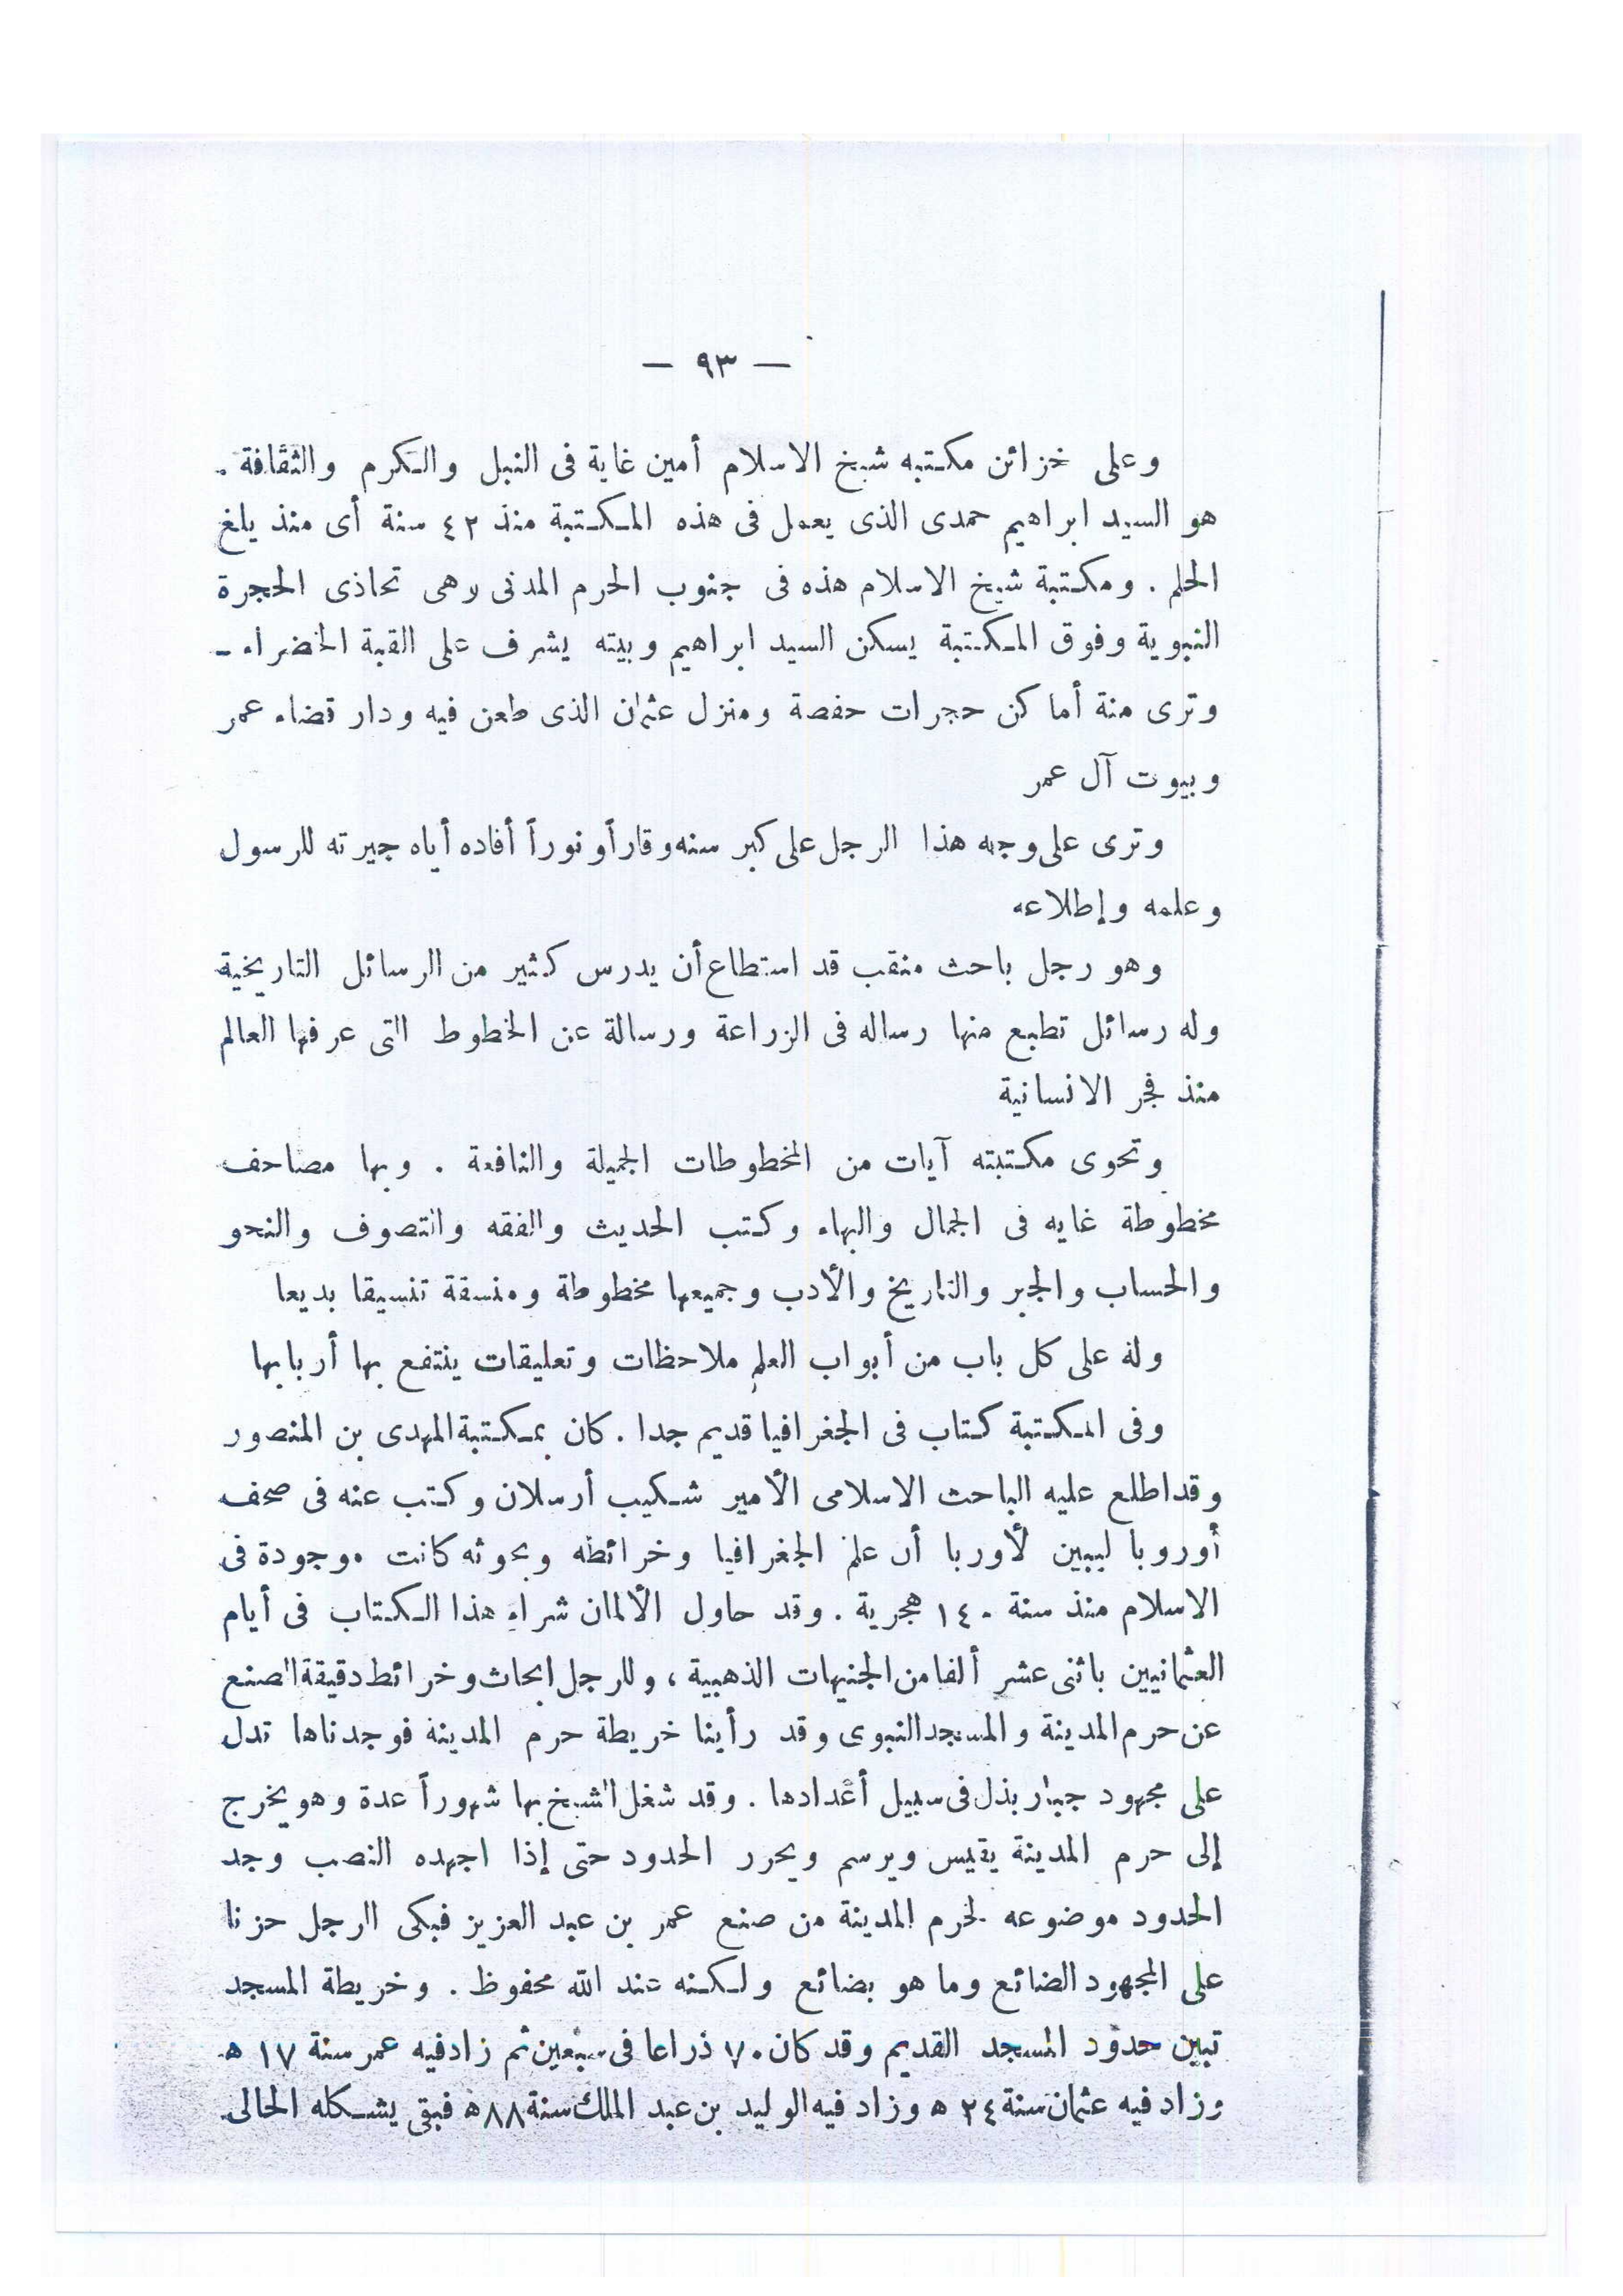 — ٩٣ —
وعلى خزائن مكتبه شيخ الاسلام أمين غاية فى النبل والكرم والثقافة .
هو السيد ابراهيم حمدى الذى يعمل فى هذه المكتبة منذ ٤٢ سنة أى منذ يلغ
الحلم . ومكتبة شيخ الاسلام هذه فى جنوب الحرم المدنى وهى تحاذى الحجرة
النبوية وفوق المكتبة يسكن السيد ابراهيم وبيته يشرف على القبة الخضراء -
وترى منة أماكن حجرات حفصة ومنزل عثمان الذى طعن فيه ودار قضاء عمر
وبيوت آل عمر
وترى على وجه هذا الرجل على كبر سنه وقاراً ونوراً أفاده أياه جيرته للرسول
وعلمه وإطلاعه
وهو رجل باحث منقب قد استطاع أن يدرس كثير من الرسائل التاريخية
وله رسائل تطبع منها رساله فى الزراعة ورسالة عن الخطوط التى عرفها العالم
منذ فجر الانسانية
وتحوى مكتبته آيات من المخطوطات الجميلة والنافعة . وبها مصاحف
مخطوطة غايه فى الجمال والبهاء وكتب الحديث والفقه والتصوف والنحو
والحساب والجبر والتاريخ والأدب وجميعها مخطوطة ومنسقة تنسيقا بديعا
وله على كل باب من أبواب العلم ملاحظات وتعليقات ينتفع بها أربابها
وفى المكتبة كتاب فى الجغرافيا قديم جدا . كان بمكتبة المهدى بن المنصور
وقد اطلع عليه الباحث الاسلامى الأمير شكيب أرسلان وكتب عنه فى صحف
أوروبا ليبين لأوربا أن علم الجغرافيا وخرائطه وبحوثه كانت موجودة فى
الاسلام منذ سنة ١٤٠ هجرية . وقد حاول الألمان شراء هذا الكتاب فى أيام
العثمانيين باثنى عشر ألفا من الجنيهات الذهبية ، وللرجل ابحاث وخرائط دقيقة الصنع
عن حرم المدينة والمسجد النبوى وقد رأينا خريطة حرم المدينة فوجدناها تدل
على مجهود جبار بذل فى سبيل أعدادها . وقد شغل الشيخ بها شهوراً عدة وهو يخرج
إلى حرم المدينة يقيس ويرسم ويحرر الحدود حتى إذا اجهده النصب وجد
الحدود موضوعه لحرم المدينة من صنع عمر بن عبد العزيز فبكى الرجل حزنا
على المجهود الضائع وما هو بضائع ولكنه عند الله محفوظ . وخريطة المسجد
تبين حدود المسجد القديم وقد كان ٧٠ ذراعا فى سبعين ثم زاد فيه عمر سنة ١٧ ه
وزاد فيه عثمان سنة ٢٤ ه وزاد فيه الوليد بن عبد الملك سنة ٨٨ ه فبقى يشكله الحالى